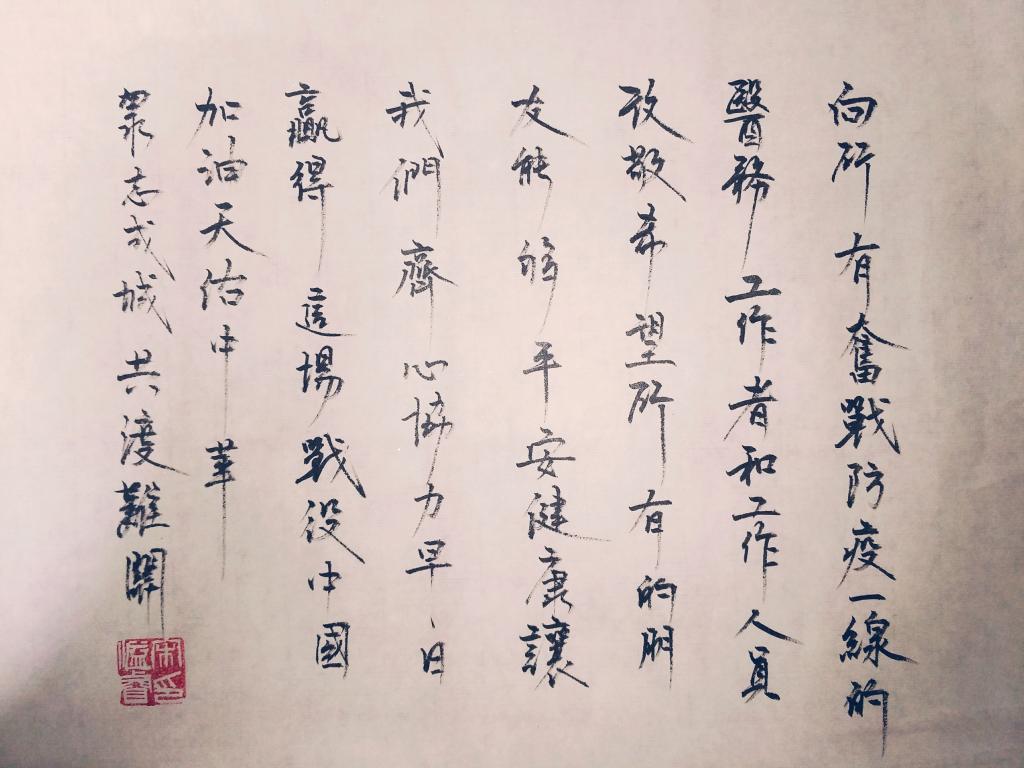 向所有奮戰防疫一線的
醫務工作者和工作人員
致敬希望所有的朋
友能够平安健康讓
我們齊心協力早日
贏得這場戰役中國
加油天佑中華
眾志成城共渡難關